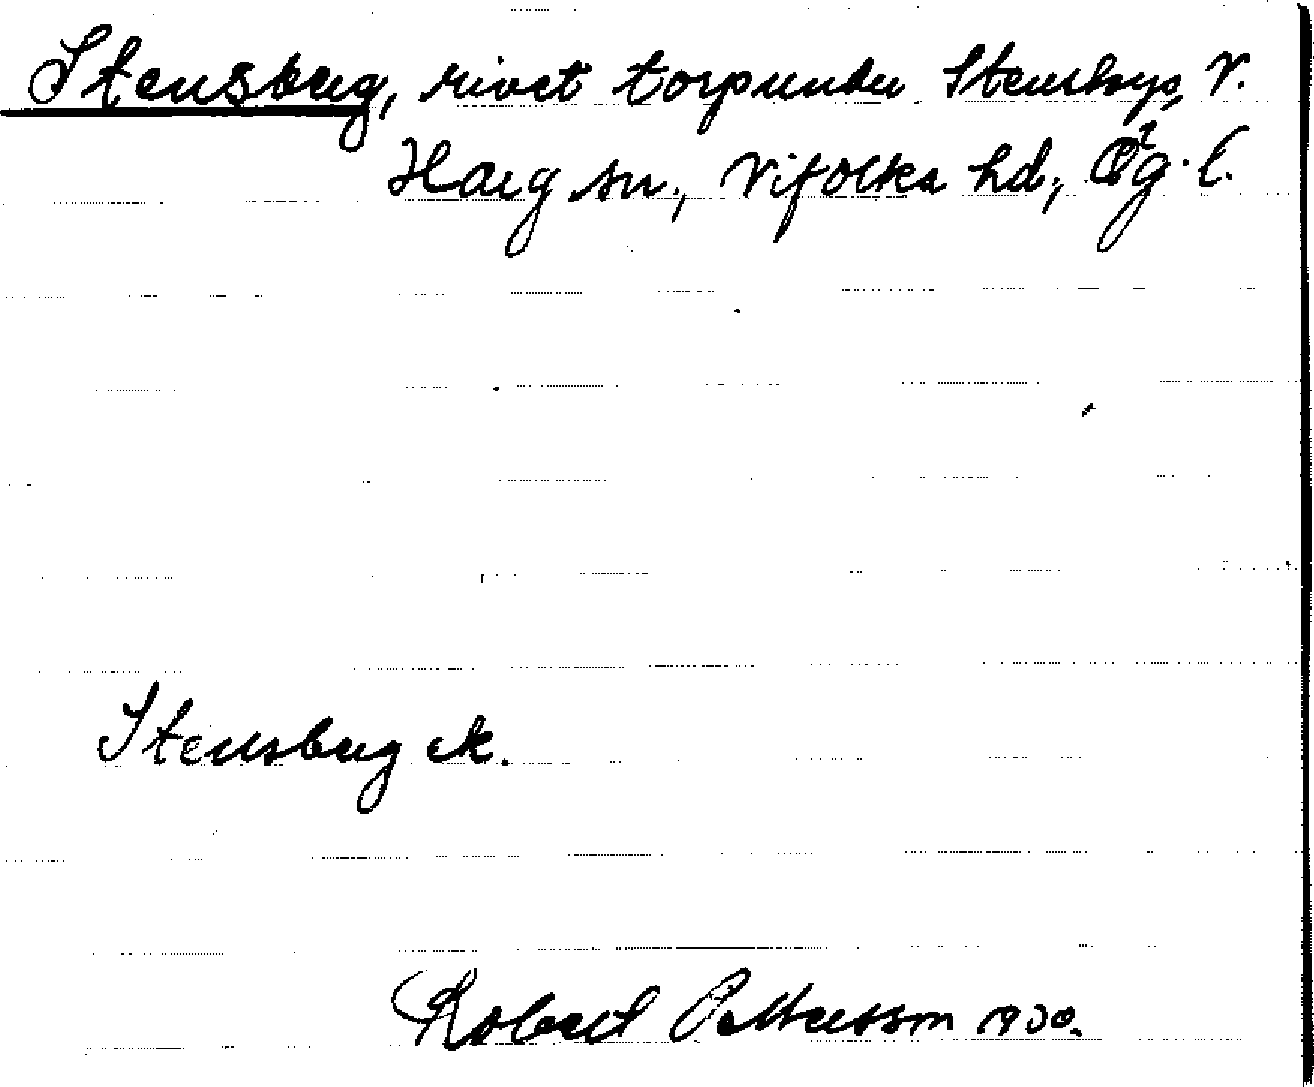 Stensberg, rivet torp under Stensbys, V.
Harg sn., Vifolka hd., Ög. l.
Stensberg ek.
Robert Pettersson 1930.